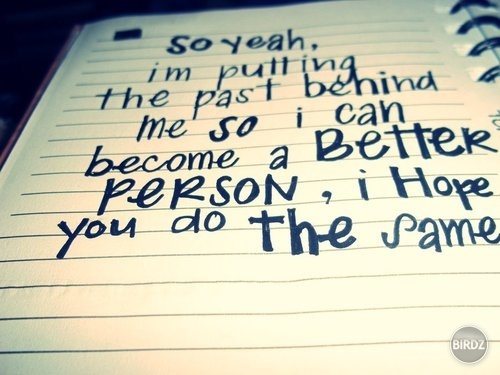 so yeah,
im putting
the past behind
me so i can
become a BeTTER
PERSON, i Hope
you do The same
BIRDZ